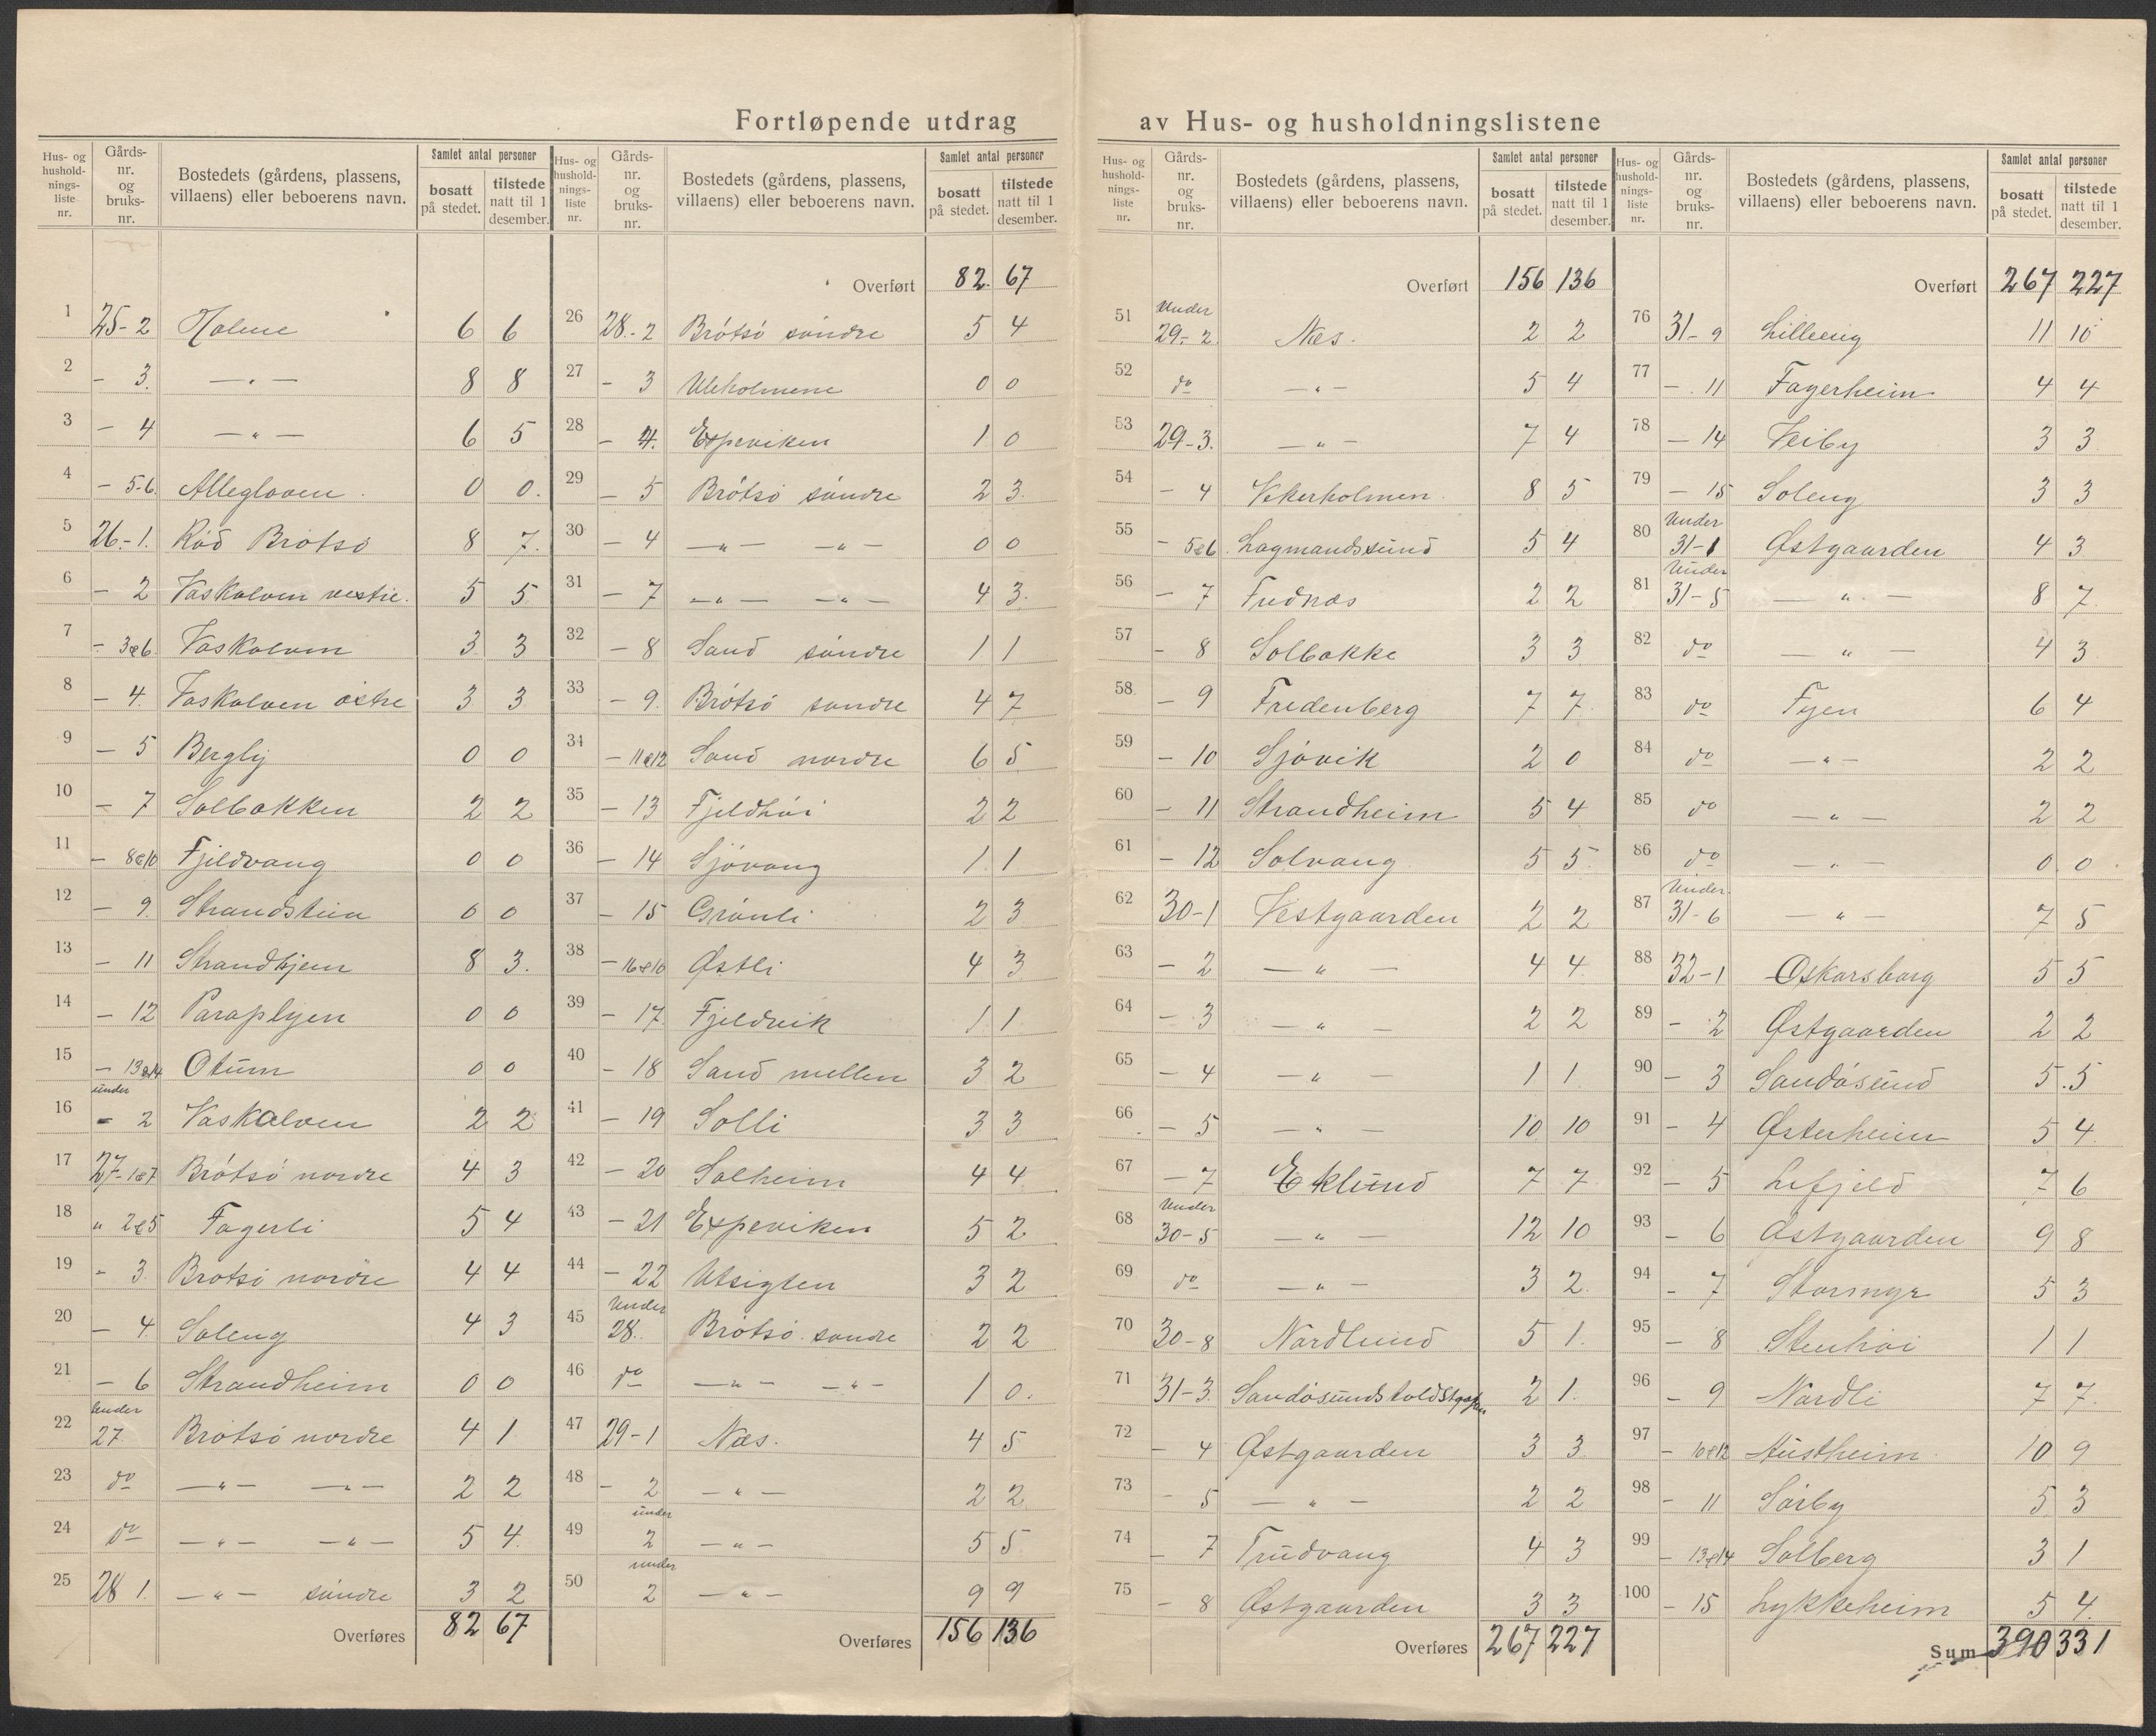 Fortløpende utdrag av Hus- og husholdningslistene
Hus- og husholdnings-liste nr. Gårds-nr. og bruks-nr. Bostedets (gårdens, plassens, villaens) eller beboerens navn. Samlet antal personer bosatt på stedet. tilstede natt til 1 desember.
1 25-2 Holme 6 6
2 - 3. -"- 8 8
3 - 4 -"- 6 5
4 - 5-6 0 0.
5 26-1. Rød Brøtsø 8 7.
6 - 2 Vaskalven vestre. 5 5
7 - 3&6. Vaskalven 3 3
8 - 4. Vaskalven østre 3 3
9 - 5 Bergly 0 0
10 - 7 Solbakken 2 2
11 - 8&10 Fjeldvang 0 0
12 - 9. 0 0
13 - 11 Strandhjem 8 3.
14 - 12 Paraplyen 0 0
15 - 13&14 Otium 0 0
16 under - 2 Vaskalven 2 2
17 27-1&7 Brøtsø nordre 4 3
18 " 2&5 Fagerli 5 4
19 - 3. Brøtsø nordre 4 4
20 - 4 Soleng 4 3
21 - 6 Strandheim 0 0
22 Under 27. Brøtsø nordre 4 1
23 do -"- -"- 2 2
24 do -"- -"- 5 4.
25 28 1. -"- søndre 3 2
Overføres 82 67
Hus- og husholdnings-liste nr. Gårds-nr. og bruks-nr. Bostedets (gårdens, plassens, villaens) eller beboerens navn. Samlet antal personer bosatt på stedet. tilstede natt til 1 desember.
Overført 82. 67
26 28.-2 Brøtsø søndre 5 4
27 - 3 Uleholmene 0 0
28 - 4. Expeviken 1 0
29 - 5 Brøtsø søndre 2 3.
30 - 4 -"- -"- 0 0
31 - 7 -"- -"- 4 3.
32 - 8 Sand søndre 1 1
33 - 9. Brøtsø søndre 4 7
34 - 11&12 Sand nordre 6 5
35 - 13 Fjeldhøi 2 2
36 - 14 Sjøvang 1 1
37 - 15 Grønli 2 3
38 - 16&10 Østli 4 3
39 - 17. Fjeldvik 1 1
40 - 18 Sand mellen 3 2
41 - 19 Solli 3 3
42 - 20 Solheim 4 4
43 - 21 Expeviken 5 2
44 - 22 Utsigten 3 2
45 Under 28. Brøtsø søndre 2 2
46 do -"- -"- 1 0.
47 29-1 Næs. 4 5
48 - 2 -"- 2 2
49 under 2 -"- 5 5
50 under 2 -"- 9 9
Overføres 156 136
Hus- og husholdnings-liste nr. Gårds-nr. og bruks-nr. Bostedets (gårdens, plassens, villaens) eller beboerens navn. Samlet antal personer bosatt på stedet. tilstede natt til 1 desember.
Overført 156 136
51 Under 29.-2 Næs. 2 2
52 do -"- 5 4
53 29-3. -"- 7 4
54 - 4 Vekerholmen 8 5
55 - 5&6. Lagmandssund 5 4
56 - 7 Fudnæs 2 2
57 - 8 Solbakke 3 3
58. - 9 Fredenberg 7 7
59 - 10 Sjøvik 2 0
60 - 11 Strandheim 5 4
61 - 12 Solvang 5 5.
62 30-1 Vestgaarden 2 2
63 - 2 -"- 4 4
64 - 3 -"- 2 2
65 - 4 -"- 1 1
66 - 5 -"- 10 10
67 - 7 Eklund 7 7
68 Under 30-5 -"- 12 10
69 do -"- 3 2.
70 30-8 Nordlund 5 1.
71 31-3. 2 1.
72 - 4 Østgaarden 3 3
73 - 5 -"- 2 2
74 - 7 Trudvang 4 3
75 - 8 Østgaarden 3 3
Overføres 267 227
Hus- og husholdnings-liste nr. Gårds-nr. og bruks-nr. Bostedets (gårdens, plassens, villaens) eller beboerens navn. Samlet antal personer bosatt på stedet. tilstede natt til 1 desember.
Overført 267 227
76 31-9 Lilleeng 11 10
77 - 11 Fagerheim 4 4
78 - 14 Veiby 3 3
79 - 15 Soleng 3 3
80 Under 31-1 Østgaarden 4 3
81 Under 31-5 -"- 8 7
82 do -"- 4 3
83 do Fyen 6 4
84 do -"- 2 2
85 do -"- 2 2
86 do -"- 0 0
87 Under 31-6 -"- 7 5
88 32-1 Oskarsborg 5 5
89 - 2 Østgaarden 2 2
90 - 3 Sandøsund 5.5
91 - 4 Østerheim 5 4.
92 - 5 Lefjeld 7 6
93 - 6 Østgaarden 9 8
94 - 7 Stormyr 5 3
95 - 8 Stenhøi 1 1
96 - 9 Nordli 7 7
97 - 10&12 Austheim 10 9
98 - 11 Sørby 5 3
99 - 13&14 Solberg 3 1
100 - 15 Lykkeheim 5 4.
Sum 390 331